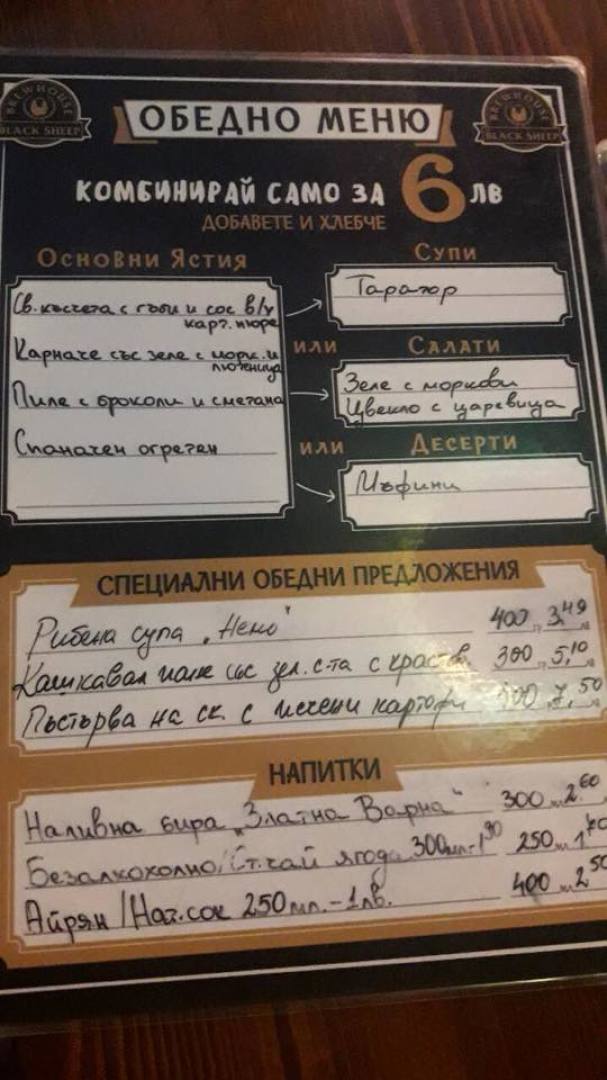 BREWHOUSE
BLACK SHEEP
ОБЕДНО МЕНЮ
BREWHOUSE
BLACK SHEEP
КОМБИНИРАЙ САМО ЗА 6 ЛВ
ДОБАВЕТЕ И ХЛЕБЧЕ
Основни Ястия
Св. късчета с гъби и сос в/у
карт. пюре
Карначе със зеле с морк. и
лютеница
Пиле с броколи и сметана
Спаначен огретен
Супи
Таратор
или
Салати
Зеле с моркови
Цвекло с царевица
или
Десерти
Мъфини
СПЕЦИАЛНИ ОБЕДНИ ПРЕДЛОЖЕНИЯ
Рибена супа „Немо" 400 3,49
Кашкавал пане със зел. с-та с краст. 300 5,10
Пъстърва на ск. с печени картофи 300 7,50
НАПИТКИ
Наливна бира „Златна Варна" 300 2,60
Безалкохолно/Ст. чай ягода 300мл-1,90 250 1,70
Айрян/Нат. сок 250 мл. - 1лв. 400 2,50